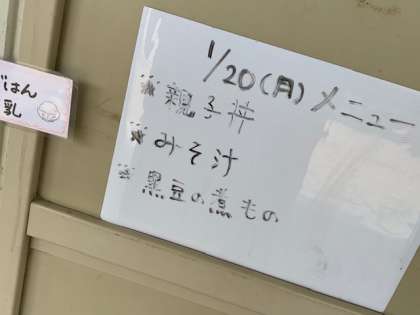 ごはん
乳
1/20(月)メニュー
※親子丼
※みそ汁
※黒豆の煮もの